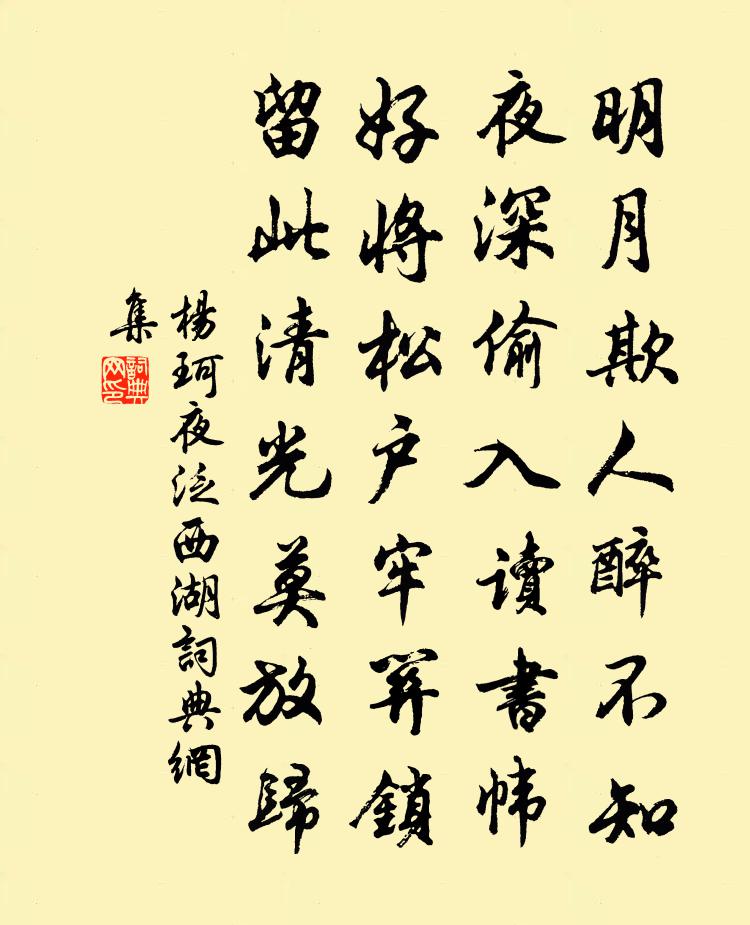 明月欺人醉不知
夜深偷入讀書幃
好將松户牢筓鎖
留此清光莫放歸
楊珂夜泛西湖詞典網
集
詞典網印